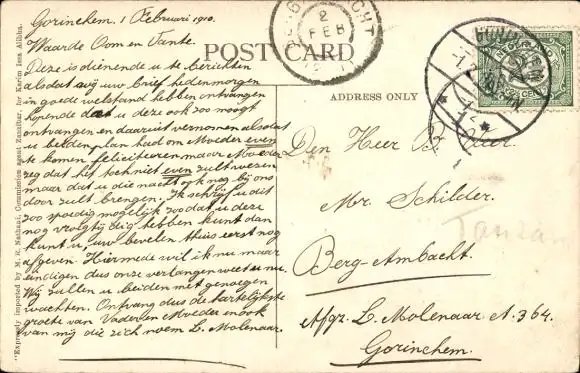 Gorinchem. 1 Februari 1910.
Waarde Oom en Tante.
Deze is dienende u te berichten
alsdat wij uw brief hedenmorgen
in goede welstand hebben ontvangen
hopende dat u deze ook zoo moogt
ontvangen en daaruit vernomen alsdat
u beiden plan had om Moeder even
te komen feliciteeren maar Moeder
zeg dat het toch niet even zult wezen
maar dat u die nacht ook nog bij ons
door zult brengen. Ik schrijf u dit
zoo spoedig mogelijk zoodat u deze
nog vroegtijdig hebben kunt dan
kunt u uw bevelen thuis eerst nog
afgeven. Hiermede wil ik nu maar
eindigen dus onze verlangen weet u nu.
Wij zullen u beiden met genoegen
wachten. Ontvang dus de hartelijkste
groete van Vader en Moeder en ook
van mij die zich noem L. Molenaar.
POST CARD
ADDRESS ONLY
Den Heer B.
Mr. Schilder.
Berg-Ambacht.
Afgz. L. Molenaar A. 364.
Gorinchem.
"Expressly imported by M. R. Nathani, Commission agent Zanzibar, for Karim Issa Alibha.
2
FEB
NEDERLAND
2½
CENT
Tanzan